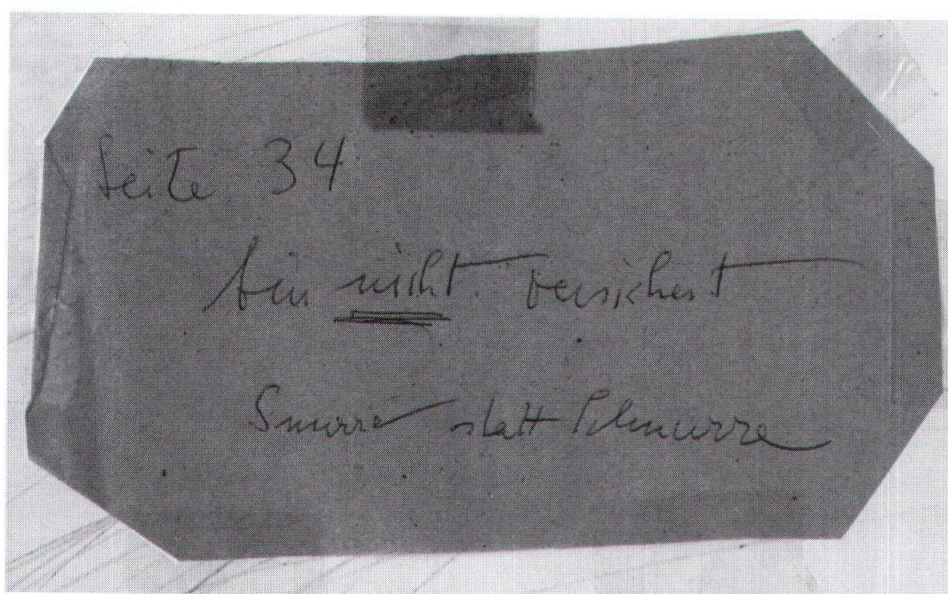 Seite 34
bin nicht versichert
Smirre statt Schmirre